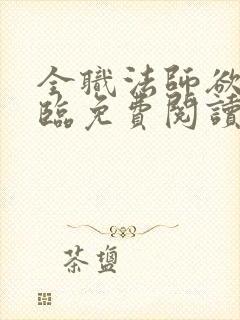 全職法師欲
臨免費閱讀
茶鹽